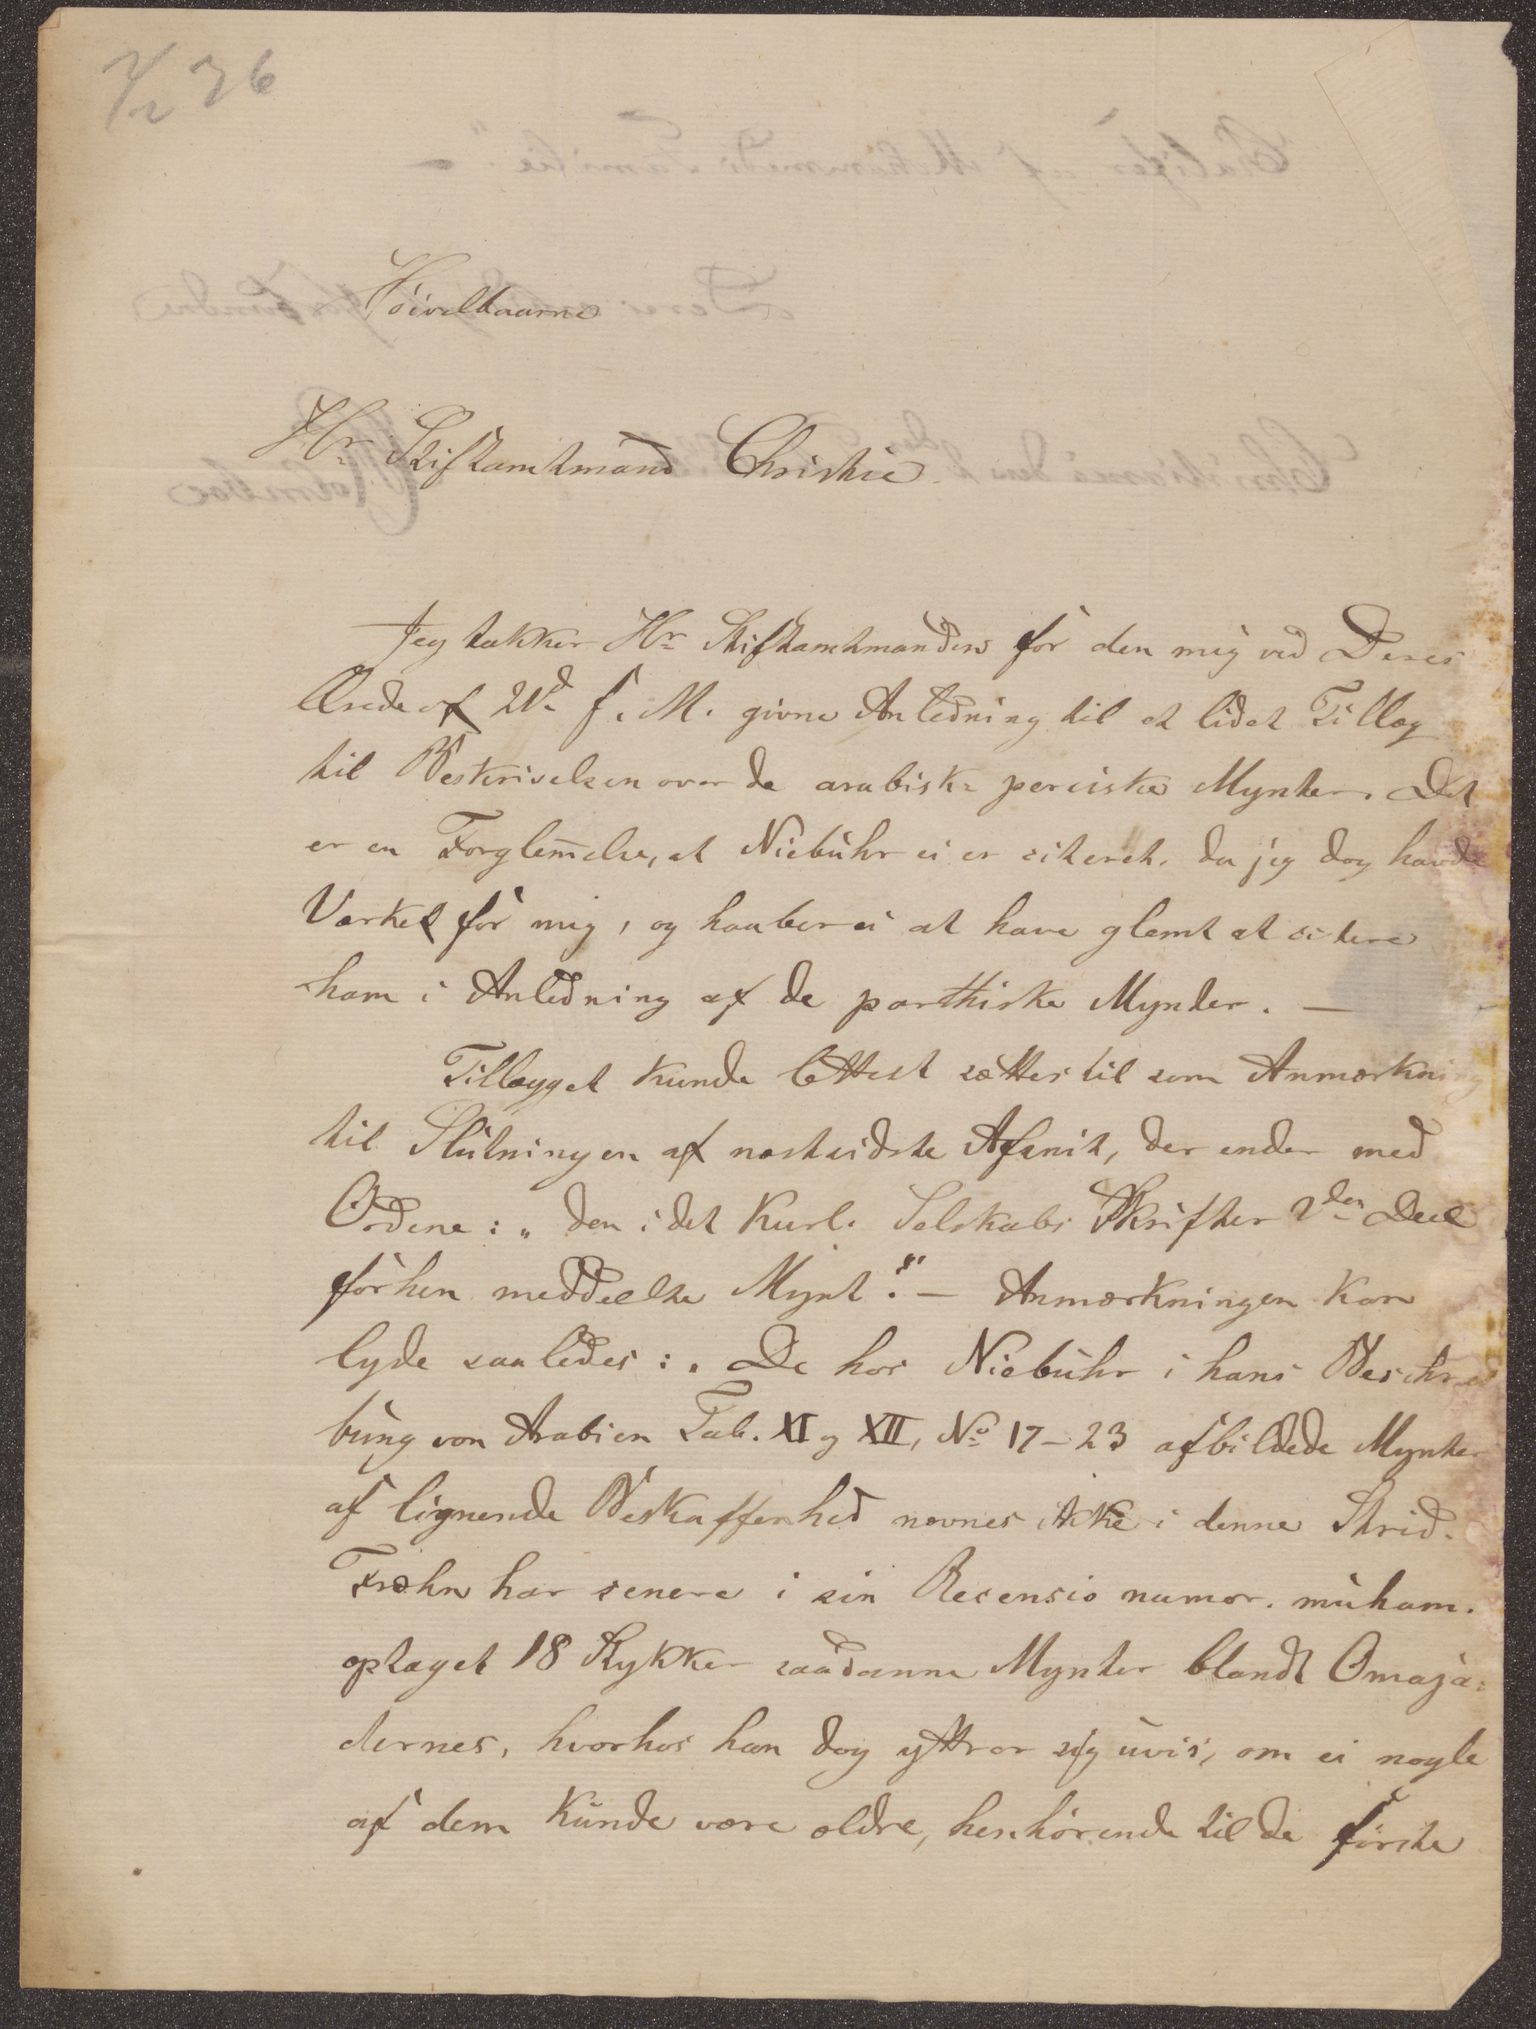 7/2 36
Höivelbaarne
Hr Stiftamtmand Christie.
Jeg takker Hr Stiftamtmanden for den mig ved Deres
Ærede af f. M. givne Anledning til et lidet Tillæg
til Beskrivelsen over de arabisk-persiske Mynter. Det
er en Forglem̄else, at Niebuhr ei er citeret, da jeg dog havde
Værket for mig, og haaber ei at have glemt at citere
ham i Anledning af de parthiske Mynter. —
Tillægget kunde lettest sættes til som Anmærkning
til Slutningen af næstsidste Afsnit, der ender med
Ordene: „den i det Kurl. Selskabs Skrifter 2den Deel
forhen meddeelte Mynt." — Anmærkningen kan
lyde saaledes: „De hos Niebuhr i hans Beschrei
bung von Arabien Tab. XI og XII, No 17–23 afbildede Mynter
af lignende Beskaffenhed nævnes ikke i denne Strid.
Fræhn har senere i sin Recensio numor. muham.
optaget 18 Stykker saadanne Mynter blandt Omaja-
dernes, hvorhos han dog yttrer sig uvis, om ei nogle
af dem kunde være ældre, henhörende til de förste